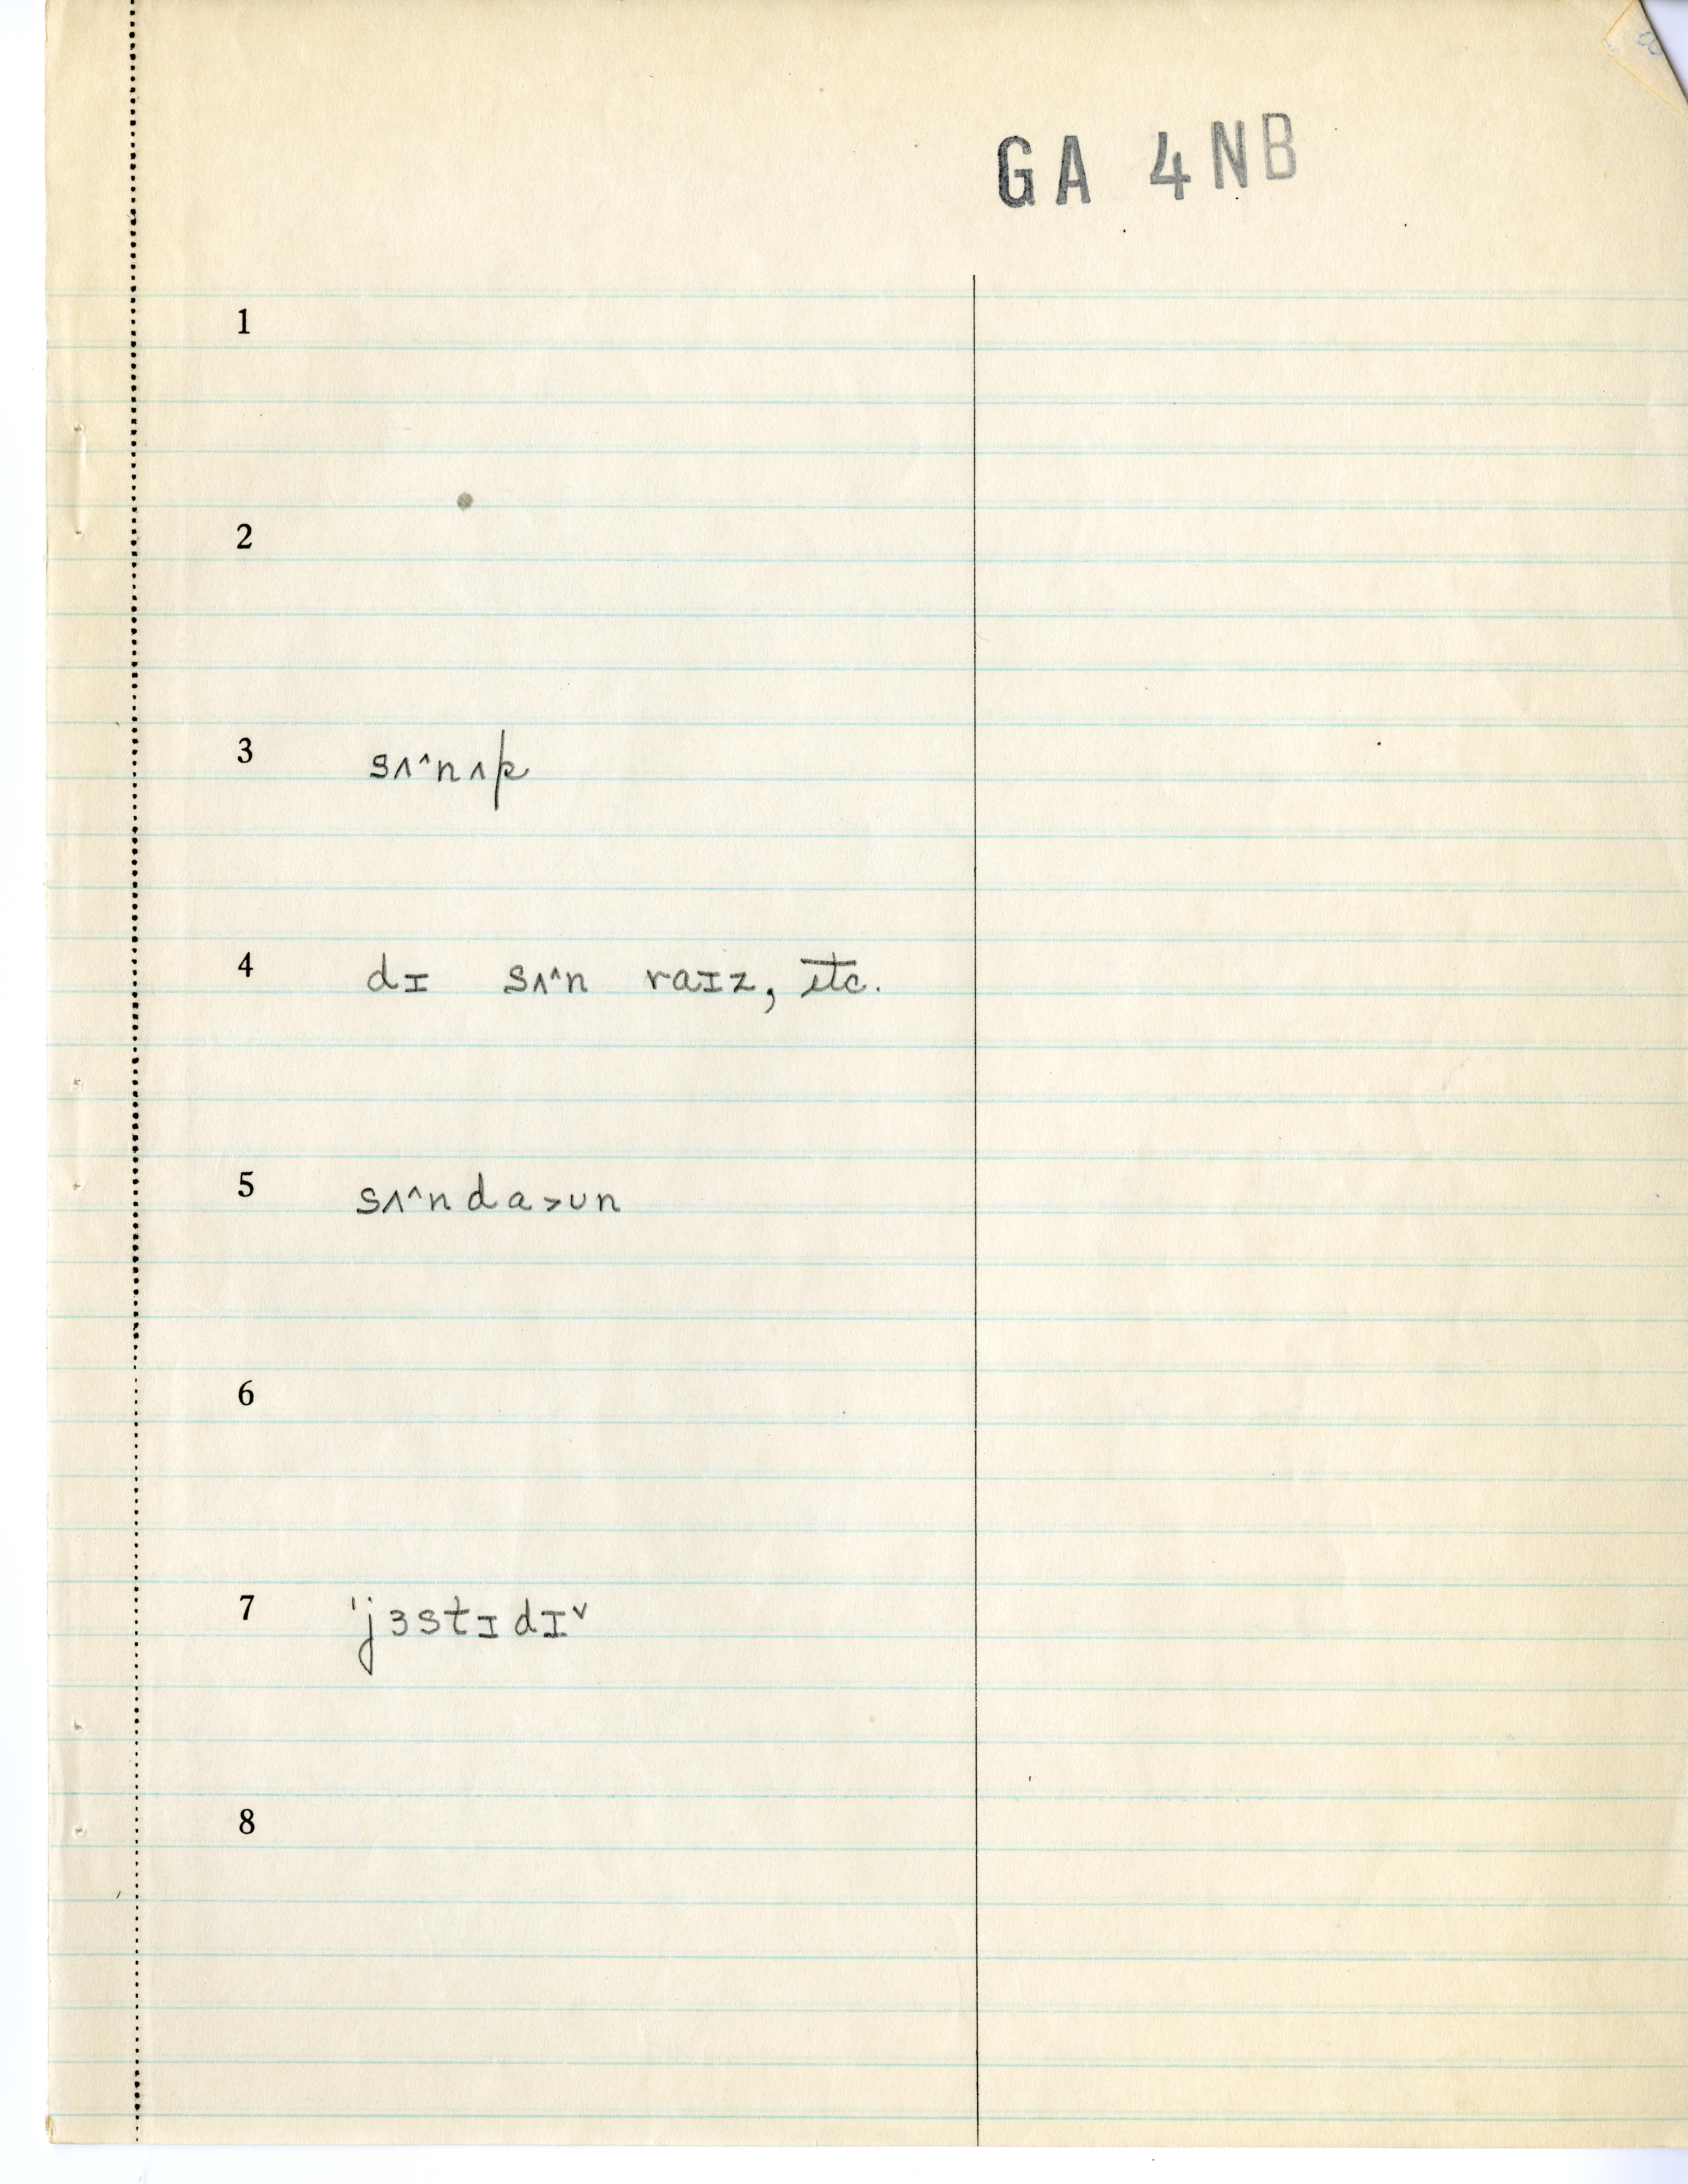 GA 4NB
1
2
3 sʌ^nʌp
4 dɪ sʌ^n raɪz, etc.
5 sʌ^nda>ʊn
6
7 'jɜstɪdɪˇ
8